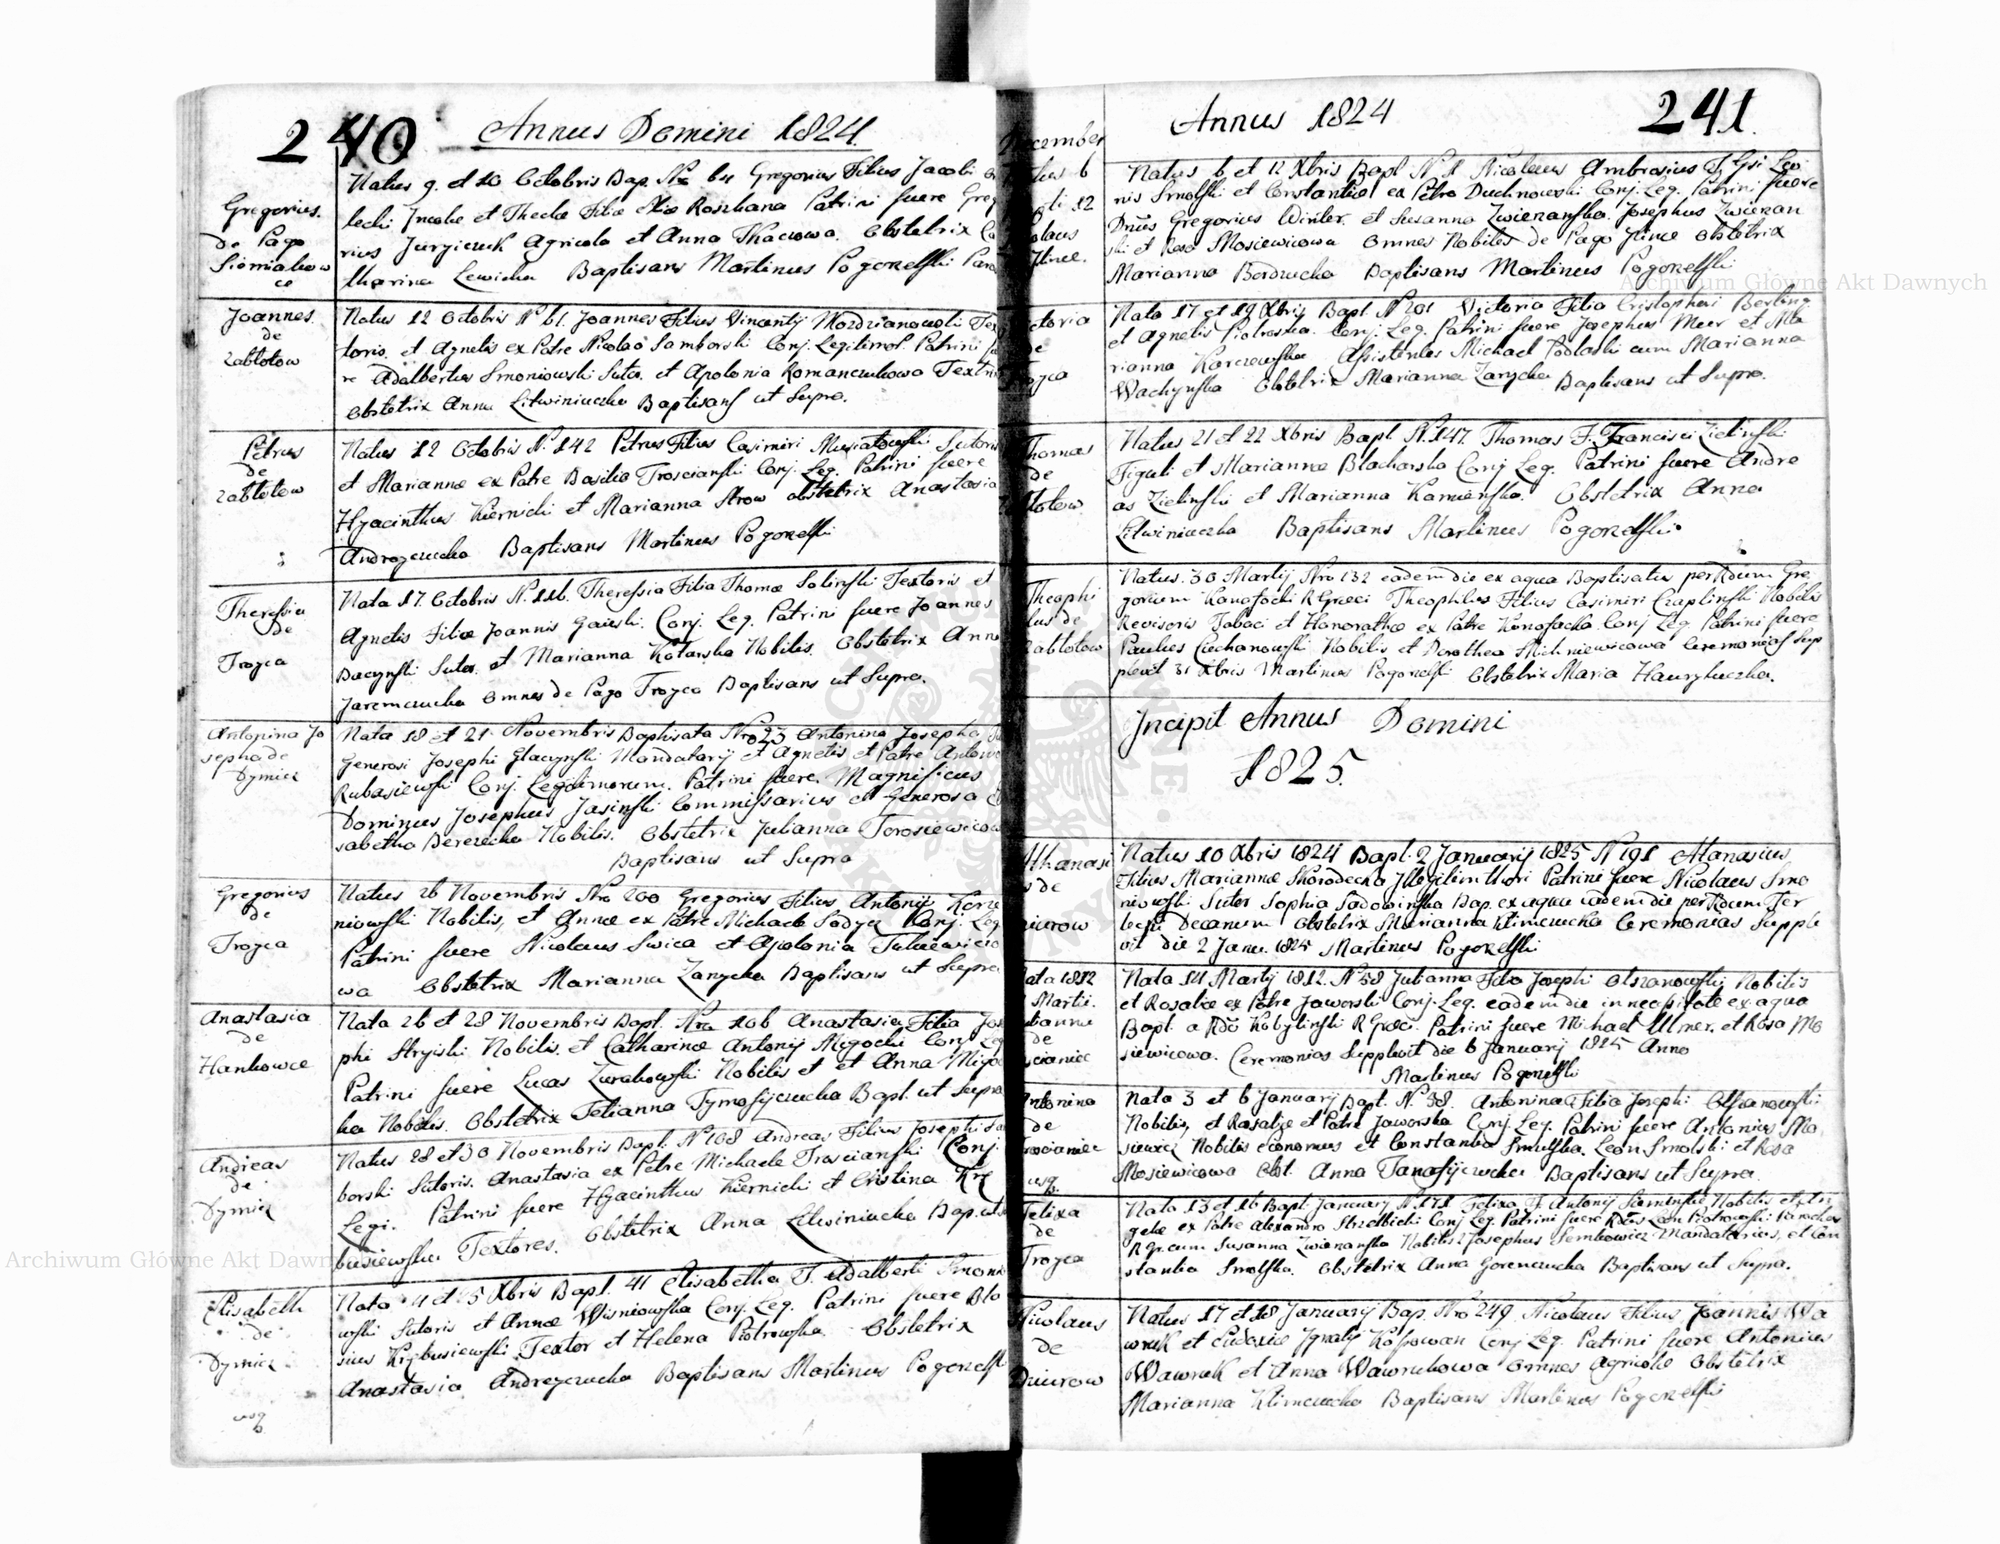 240 Annus Domini 1824.
Gregorius.
de Pago
Siemiakow
ce
Natus 9. et 10 Octobris Bap. Nr 64 Gregorius Filius Jacobi
lecki Incolae et Theclae Filiae Roszkana Patrini fuere Grego
rius Jurijczuk Agricola et Anna Tkaczowa. Obstetrix Ca
tharina Lewicka Baptisans Martinus Pogonelski Paro
Joannes.
de
Zablotow
Natus 12 Octobris N 61. Joannes Filius Vincentij Mozdzianowski Tex
toris. et Agnetis ex Patre Nicolao Samborski Conj. Legitimor. Patrini fu
re Adalbertus Smoniowski Sutor. et Apolonia Romanczukowa Textri
Obstetrix Anna Litwiniuczka Baptisans ut Supra.
Petrus
de
Zablotow
Natus 12 Octobris N. 142 Petrus Filius Casimiri Musiatowski Sutoris
et Mariannae ex Patre Basilio Troscianski Conj. Leg. Patrini fuere
Hyacinthus Kiernicki et Marianna Strow obstetrix Anastasia
Andrzejczucka Baptisans Martinus Pogonelski
Theressia
de
Troyca
Nata 17. Octobris N. 116. Theressia Filia Thomae Solinski Textoris et
Agnetis Filiae Joannis Gaiewski. Conj. Leg. Patrini fuere Joannes
Daczynski Sutor. et Marianna Kotarska Nobilis. Obstetrix Anna
Jaremczucka Omnes de Pago Troyca Baptisans ut Supra.
Antonina Jo
sepha de
Dymicz
Nata 18 et 21 Novembris Baptisata Nro 23 Antonina Josepha
Generosi Josephi Glaczynski Mandatarij et Agnetis et Patre Antonio
Rubasiewski Conj. Legitimorum. Patrini fuere. Magnificus
Dominus Josephus Jasinski Commissarius et Generosa
sabetha Berezicka Nobilis. Obstetrix Julianna Torosiewiczow
Baptisans ut Supra
Gregorius
de
Troyca
Natus 26 Novembris Nro 200 Gregorius Filius Antonij Korze
niowski Nobilis, et Annae ex Patre Michaele Sadyk Conj. Leg.
Patrini fuere Nicolaus Swica et Apolonia Tukiewiczo
wa Obstetrix Marianna Zarycka Baptisans ut Supra
Anastasia
de
Hankowce
Nata 26 et 28 Novembris Bapt. Nro 106 Anastasia Filia Jos
phi Stryiski Nobilis. et Catharinae Antonij Migocki Conj Leg
Patrini fuere Lucas Zurakowski Nobilis et et Anna Migoc
ka Nobilis. Obstetrix Tetianna Tymofijczucka Bapt. ut Supra
Andreas
de
Dymicz
Natus 28 et 30 Novembris Bapt. N 108 Andreas Filius Josephi Sa
borski Sutoris. Anastasia ex Patre Michaele Troscianski Conj.
Legi. Patrini fuere Hyacinthus Kiernicki et Cristina Krz
busiewska Textores. Obstetrix Anna Litwiniucka Bap. ut S
Elisabeth
de
Dymicz
usq
Nata 4 et 5 Xbris Bapt. 41 Elisabetha F. Adalberti Smonio
wski Sutoris et Annae Wisniowska Conj. Leg. Patrini fuere Bla
sius Krzbusiewski Textor et Helena Piotrowska. Obstetrix
Anastasia Andrzejczucka Baptisans Martinus Pogonelski
Annus 1824 241.
December
Natus 6
12
Nicolaus
Ilince.
Natus 6 et 12 Xbris Bapt N. 1 Nicolaus Ambrosius F. Gsi Leo
nis Smolski et Constantiae ex Petro Duchnowski Conj. Leg. Patrini fuere
Dnus Gregorius Winter. et Susanna Zwierzanska. Josephus Zwierzan
ski et Rosa Mosiewicowa Omnes Nobiles de Pago Ilince Obstetrix
Marianna Berdzucka Baptisans Martinus Pogonelski
Victoria
de
Troyca
Nata 17 et 19 Xbris Bapt N 201 Victoria Filia Cristophori Berling
et Agnetis Piotroska. Conj. Leg. Patrini fuere Josephus Meer et Ma
rianna Karczewska Assistentes Michael Podlaski cum Marianna
Wachynska Obstetrix Marianna Zarycka Baptisans ut Supra.
Thomas
de
Zablotow.
Natus 21 et 22 Xbris Bapt N. 147. Thomas F. Francisci Zielinski
Figuli et Mariannae Blacharska Conj Leg. Patrini fuere Andre
as Zielinski et Marianna Kamienska. Obstetrix Anna
Litwiniuczka Baptisans Martinus Pogonelski.
Theophi
lus de
Zablotow
Natus. 30 Martij Nro 132 eadem die ex aqua Baptisatus per Rdum Gre
gorium Konofacki R Graeci Theophilus Filius Casimiri Czaplinski Nobilis
Revisoris Tabaci et Honorathae ex Patre Konofacka Conj Leg Patrini fuere
Paulus Ciechanowski Nobilis et Dorothea Michniewicowa Ceremonias sup
plevit 31 Xbris Martinus Pogonelski Obstetrix Maria Hawryluczka.
Incipit Annus Domini
1825.
Athanasi
s de
Natus 10 Xbris 1824 Bapt. 2 Januarij 1825 N 191 Atanasius
Filius Mariannae Skorodecka Illegitimi thori Patrini fuere Nicolaus Smo
niowski Sutor Sophia Sadowinska Bap. ex aqua eadem die per Rdum Ter
lecki Decanum Obstetrix Marianna Klimczucka Ceremonias Supple
vit die 2 Janu. 1825 Martinus Pogonelski
Nata 1812
Martii.
Julianna
de
Troscianiec
Nata 14 Martij 1812. N 38 Julianna Filia Josephi Olszanowskij Nobilis
et Rosaliae ex Patre Jaworski Conj. Leg. eadem die in necessitate ex aqua
Bapt. a Rdo Kobylinski R Graeci. Patrini fuere Michael Ulmer. et Rosa Mo
siewicowa. Ceremonias Supplevit die 6 Januarij 1825 Anno
Martinus Pogonelski
Antonina
de
Troscianiec
usq.
Nata 3 et 6 Januarij Bapt. N. 38. Antonina Filia Josephi Olszanowski
Nobilis, et Rosaliae et Patre Jaworska Conj. Leg. Patrini fuere Antonius Mo
siewicz Nobilis Economus et Constantia Smulska. Leon Smolski et Rosa
Mosiewicowa Obst. Anna Tanasijczucka Baptisans ut Supra.
Felixa
de
Troyca
Nata 13 et 16 Bapt Januarij N. 171 Felixa F. Antonij Kaminski Nobilis et
gelae ex Patre Alexandro Strzelbicki Conj Leg. Patrini fuere Rdus Leon Piotrowski Parochus
R Gr. cum Susanna Zwierzanska Nobilis Josephus Semkowicz Mandatarius, et Con
stantia Smolska. Obstetrix Anna Gorenczucka Baptisans ut Supra.
Nicolaus
de
Dziurow
Natus 17 et 18 Januarij Bap. Nro 249. Nicolaus Filius Joannis Wa
wruk et Eudociae Ignatij Kossowan Conj Leg. Patrini fuere Antonius
Wawruk et Anna Wawrukowa Omnes Agricolae Obstetrix
Marianna Klimczucka Baptisans Martinus Pogonelski
Archiwum Główne Akt Dawnych
Archiwum Główne Akt Dawnych